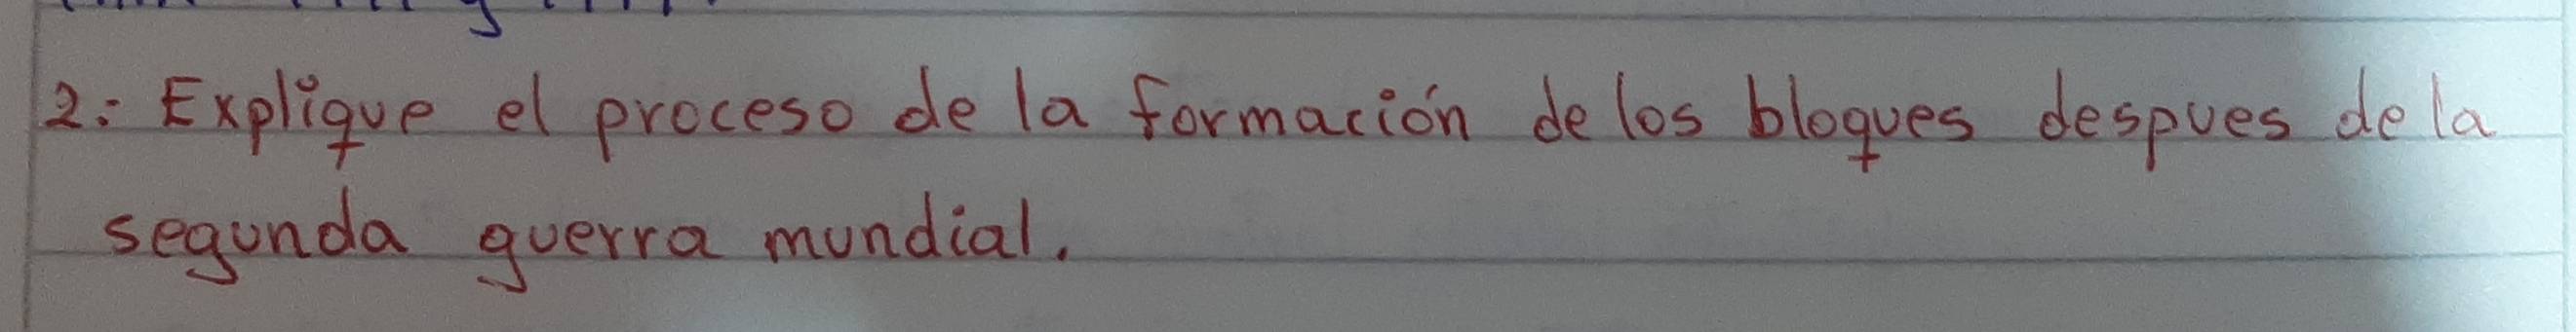 2: Explique el proceso de la formación de los bloques despues de la
segunda guerra mundial.